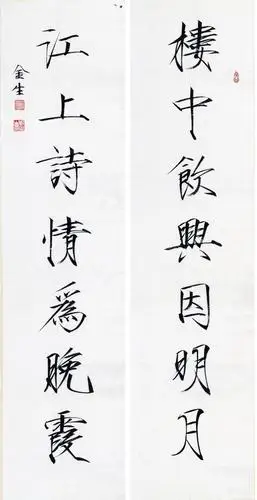 樓中飲興因明月
江上詩情爲晚霞
金生